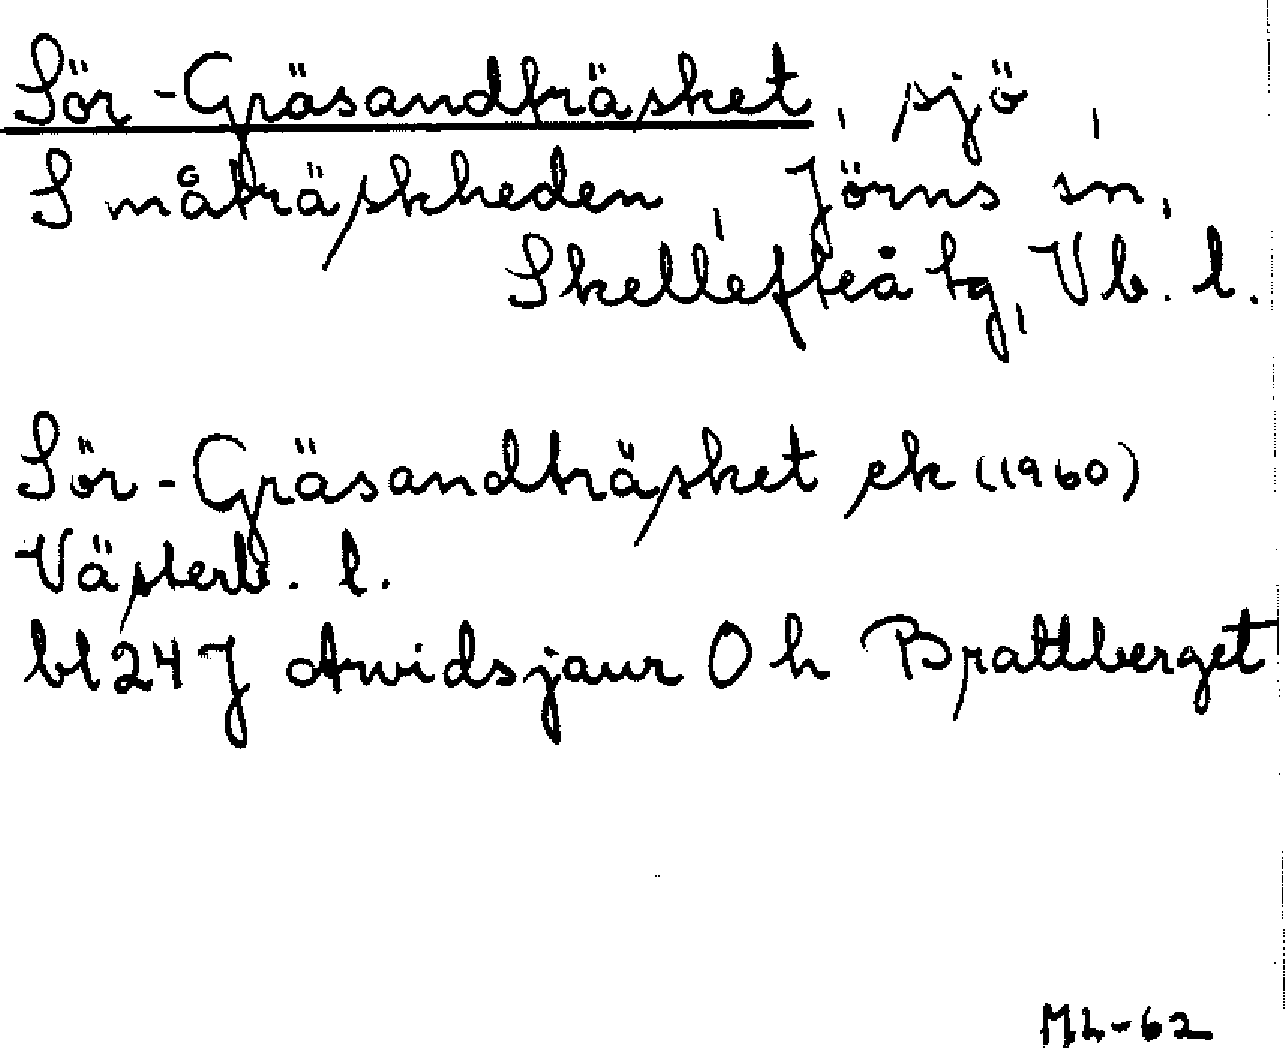 Sör-Gräsandträsket, sjö,
Småträskheden, Jörns sn,
Skellefteå tg, Vb. l.
Sör-Gräsandträsket ek (1960)
Västerb. l.
bl 24 J Arvidsjaur 0 h Brattberget
ML-62